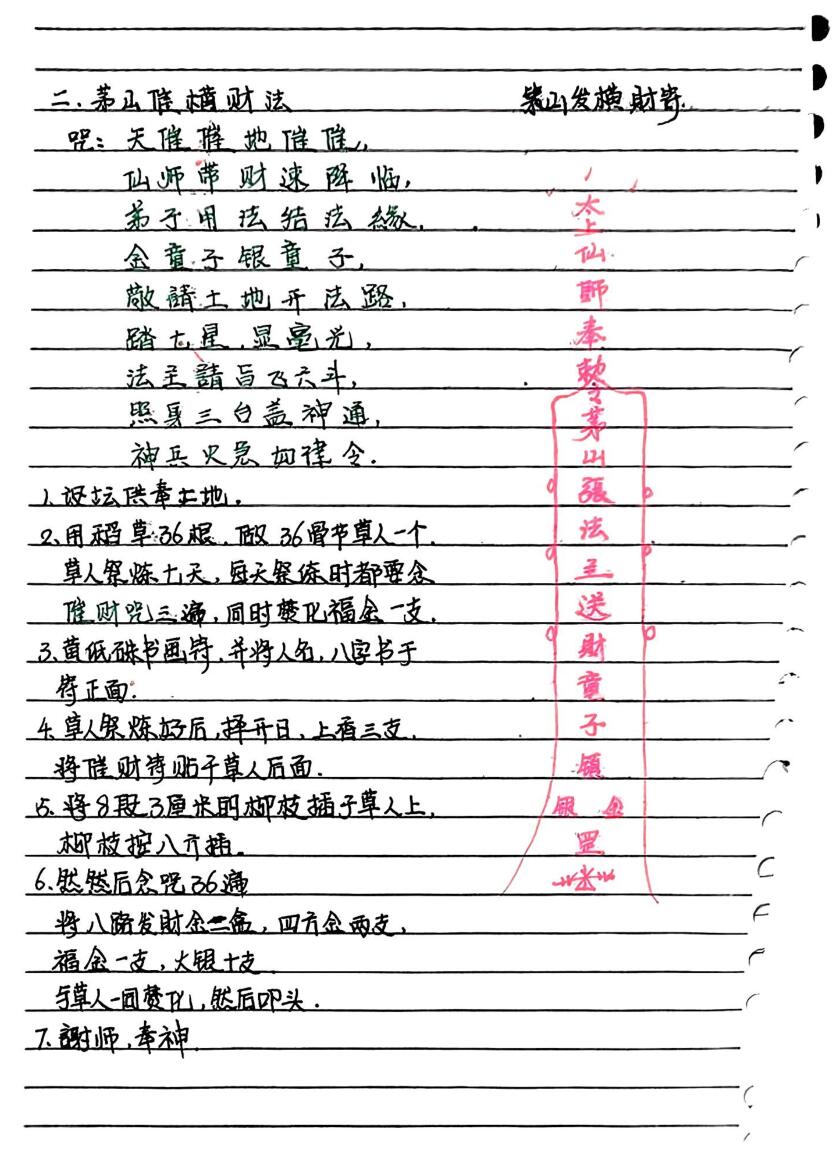 二.茅山催横财法
茅山发横財符.
咒：天催催地催催,,
仙师带财速降临,
弟子用法结法緣.
金童子银童子,
敬請土地开法路,
踏七星.显毫光,
法主請旨飞六斗,
照身三台盖神通,
神兵火急如律令.
1.设坛供奉土地.
2.用稻草36根.做36骨节草人一个.
草人祭炼七天,每天祭练时都要念
催财咒三遍,同时焚化福金一支.
3.黄纸硃书画符,并将人名,八字书于
符正面.
4.草人祭炼好后,择开日,上香三支.
将催财符贴于草人后面.
5.将8段3厘米的柳枝插于草人上,
柳枝按八方插.
6.然然后念咒36遍
将八路发財金二盒,四方金两支,
福金一支,火银十支
与草人一同焚化,然后叩头.
7.謝师,奉神.
太上仙師奉敕令茅山張法主送財童子領
银 金
罡